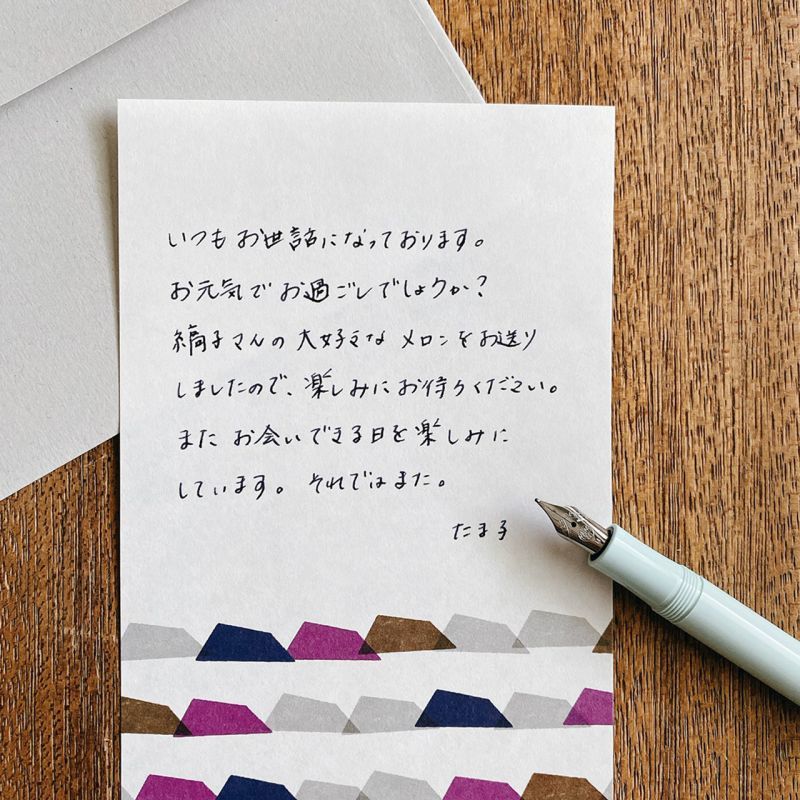 いつもお世話になっております。
お元気でお過ごしでしょうか？
縞子さんの大好きなメロンをお送り
しましたので、楽しみにお待ちください。
またお会いできる日を楽しみに
しています。それではまた。
たま子